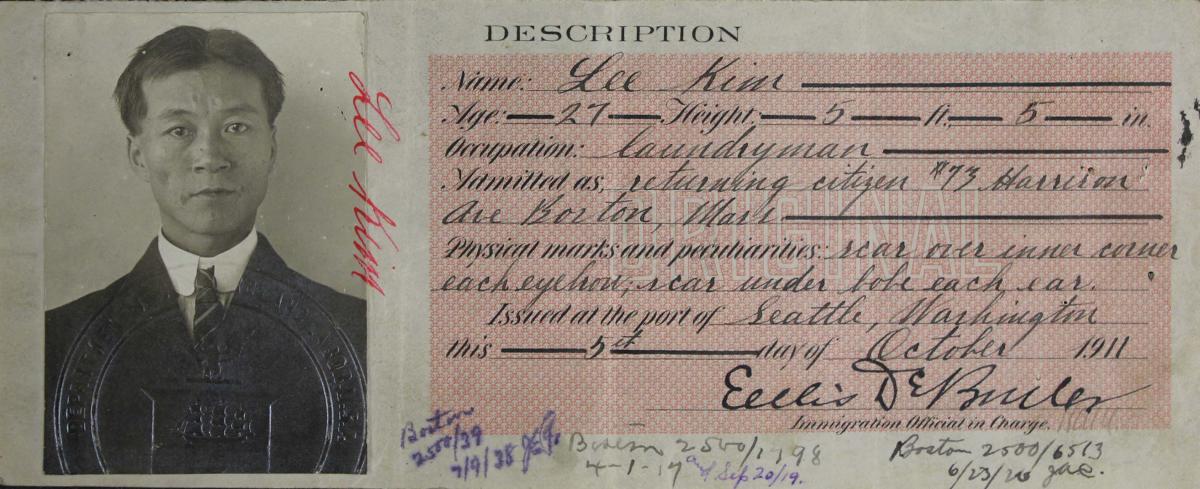 DESCRIPTION
Name: Lee Kim
Age: 27 Height: 5 ft. 5 in.
Occupation: laundryman
Admitted as, returning citizen #73 Harrison
Ave Boston, Mass
ORIGINAL
Physical marks and peculiarities: scar over inner corner
each eyebrow; scar under lobe each ear.
Issued at the port of Seattle, Washington
this 5th day of October 1911
Ellis DeBruler
Immigration Official in Charge.
Lee Kim
DEPARTMENT OF COMMERCE AND LABOR
Boston
2500/39
7/9/38
Boston 2500/1798
4-1-17 and Sep 20/19.
Boston 2500/6513
6/23/26